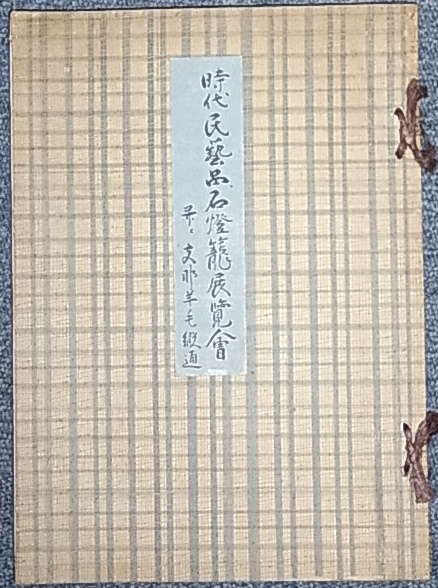 時代民藝品石燈籠展覽會
並に支那羊毛緞通